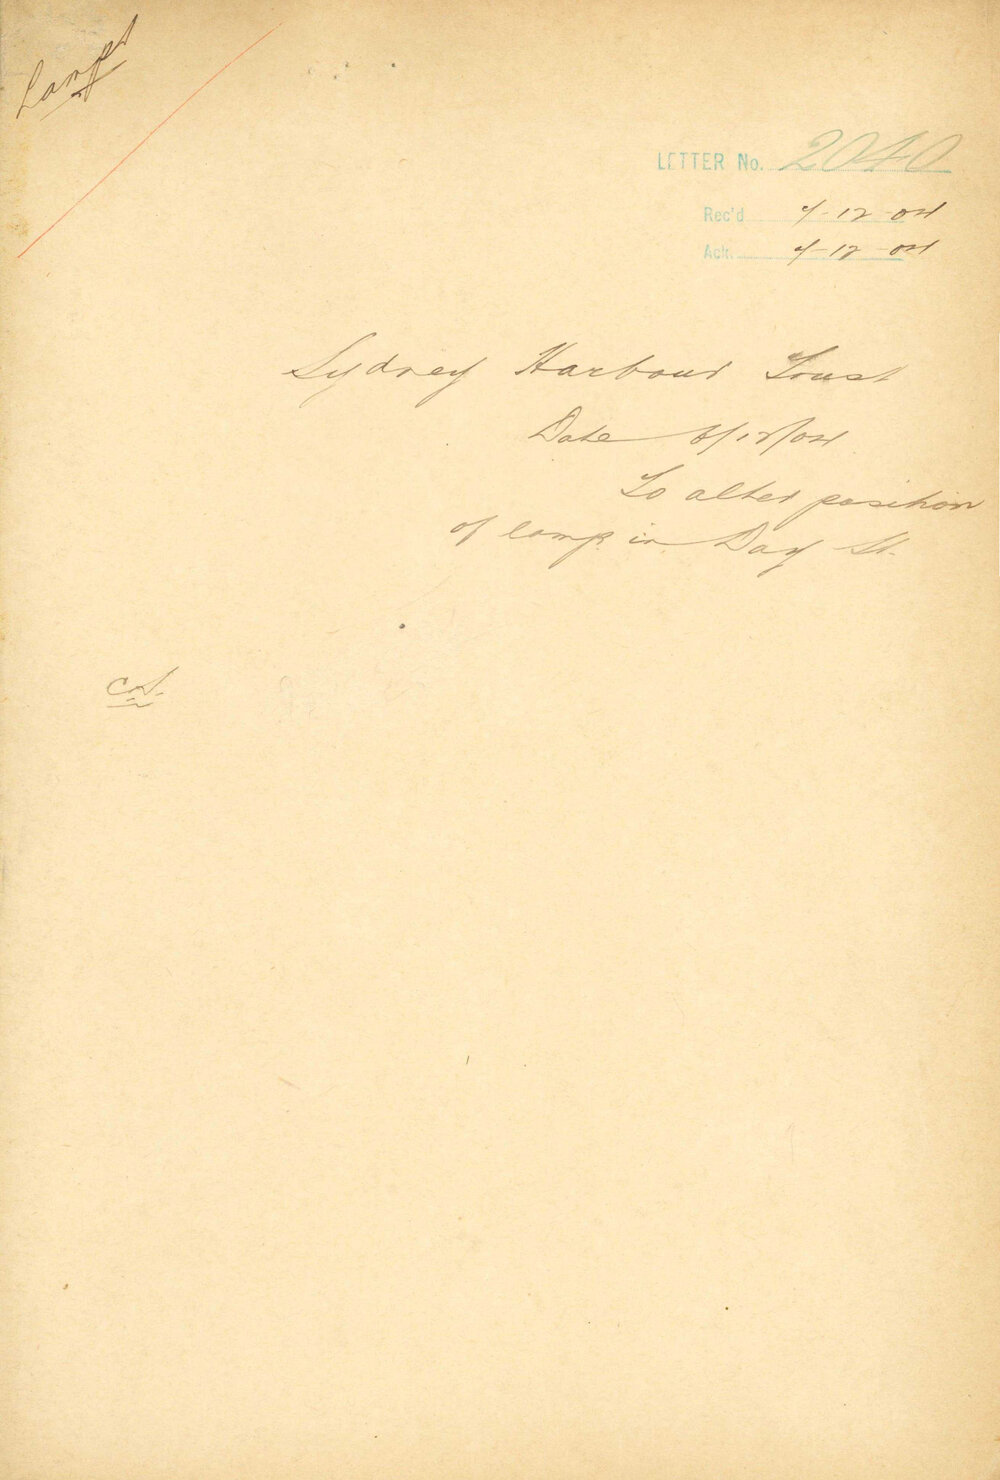 Lamps
LETTER No. 2040
Rec'd 7-12-04
Ack. 7-12-04
Sydney Harbour Trust
Date 6/12/04
To alter position
of lamp in Day St.